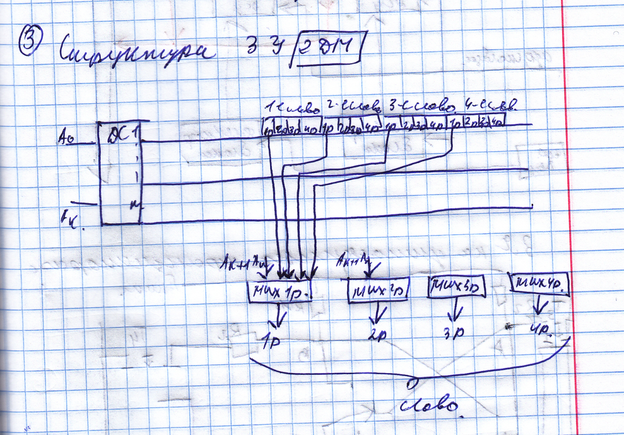 ③ Структура ЗУ 2DM
1-слово 2-слово 3-слово 4-слов.
1р 2р 3р 4р 1р 2р 3р 4р 1р 2р 3р 4р 1р 2р 3р 4р
A₀ DC 1
Aₖ. n
Aₖ₊₁ Aₙ Aₖ₊₁ Aₙ
мих 1р. мих 2р мих 3р мих 4р.
1р 2р 3р 4р.
слово.